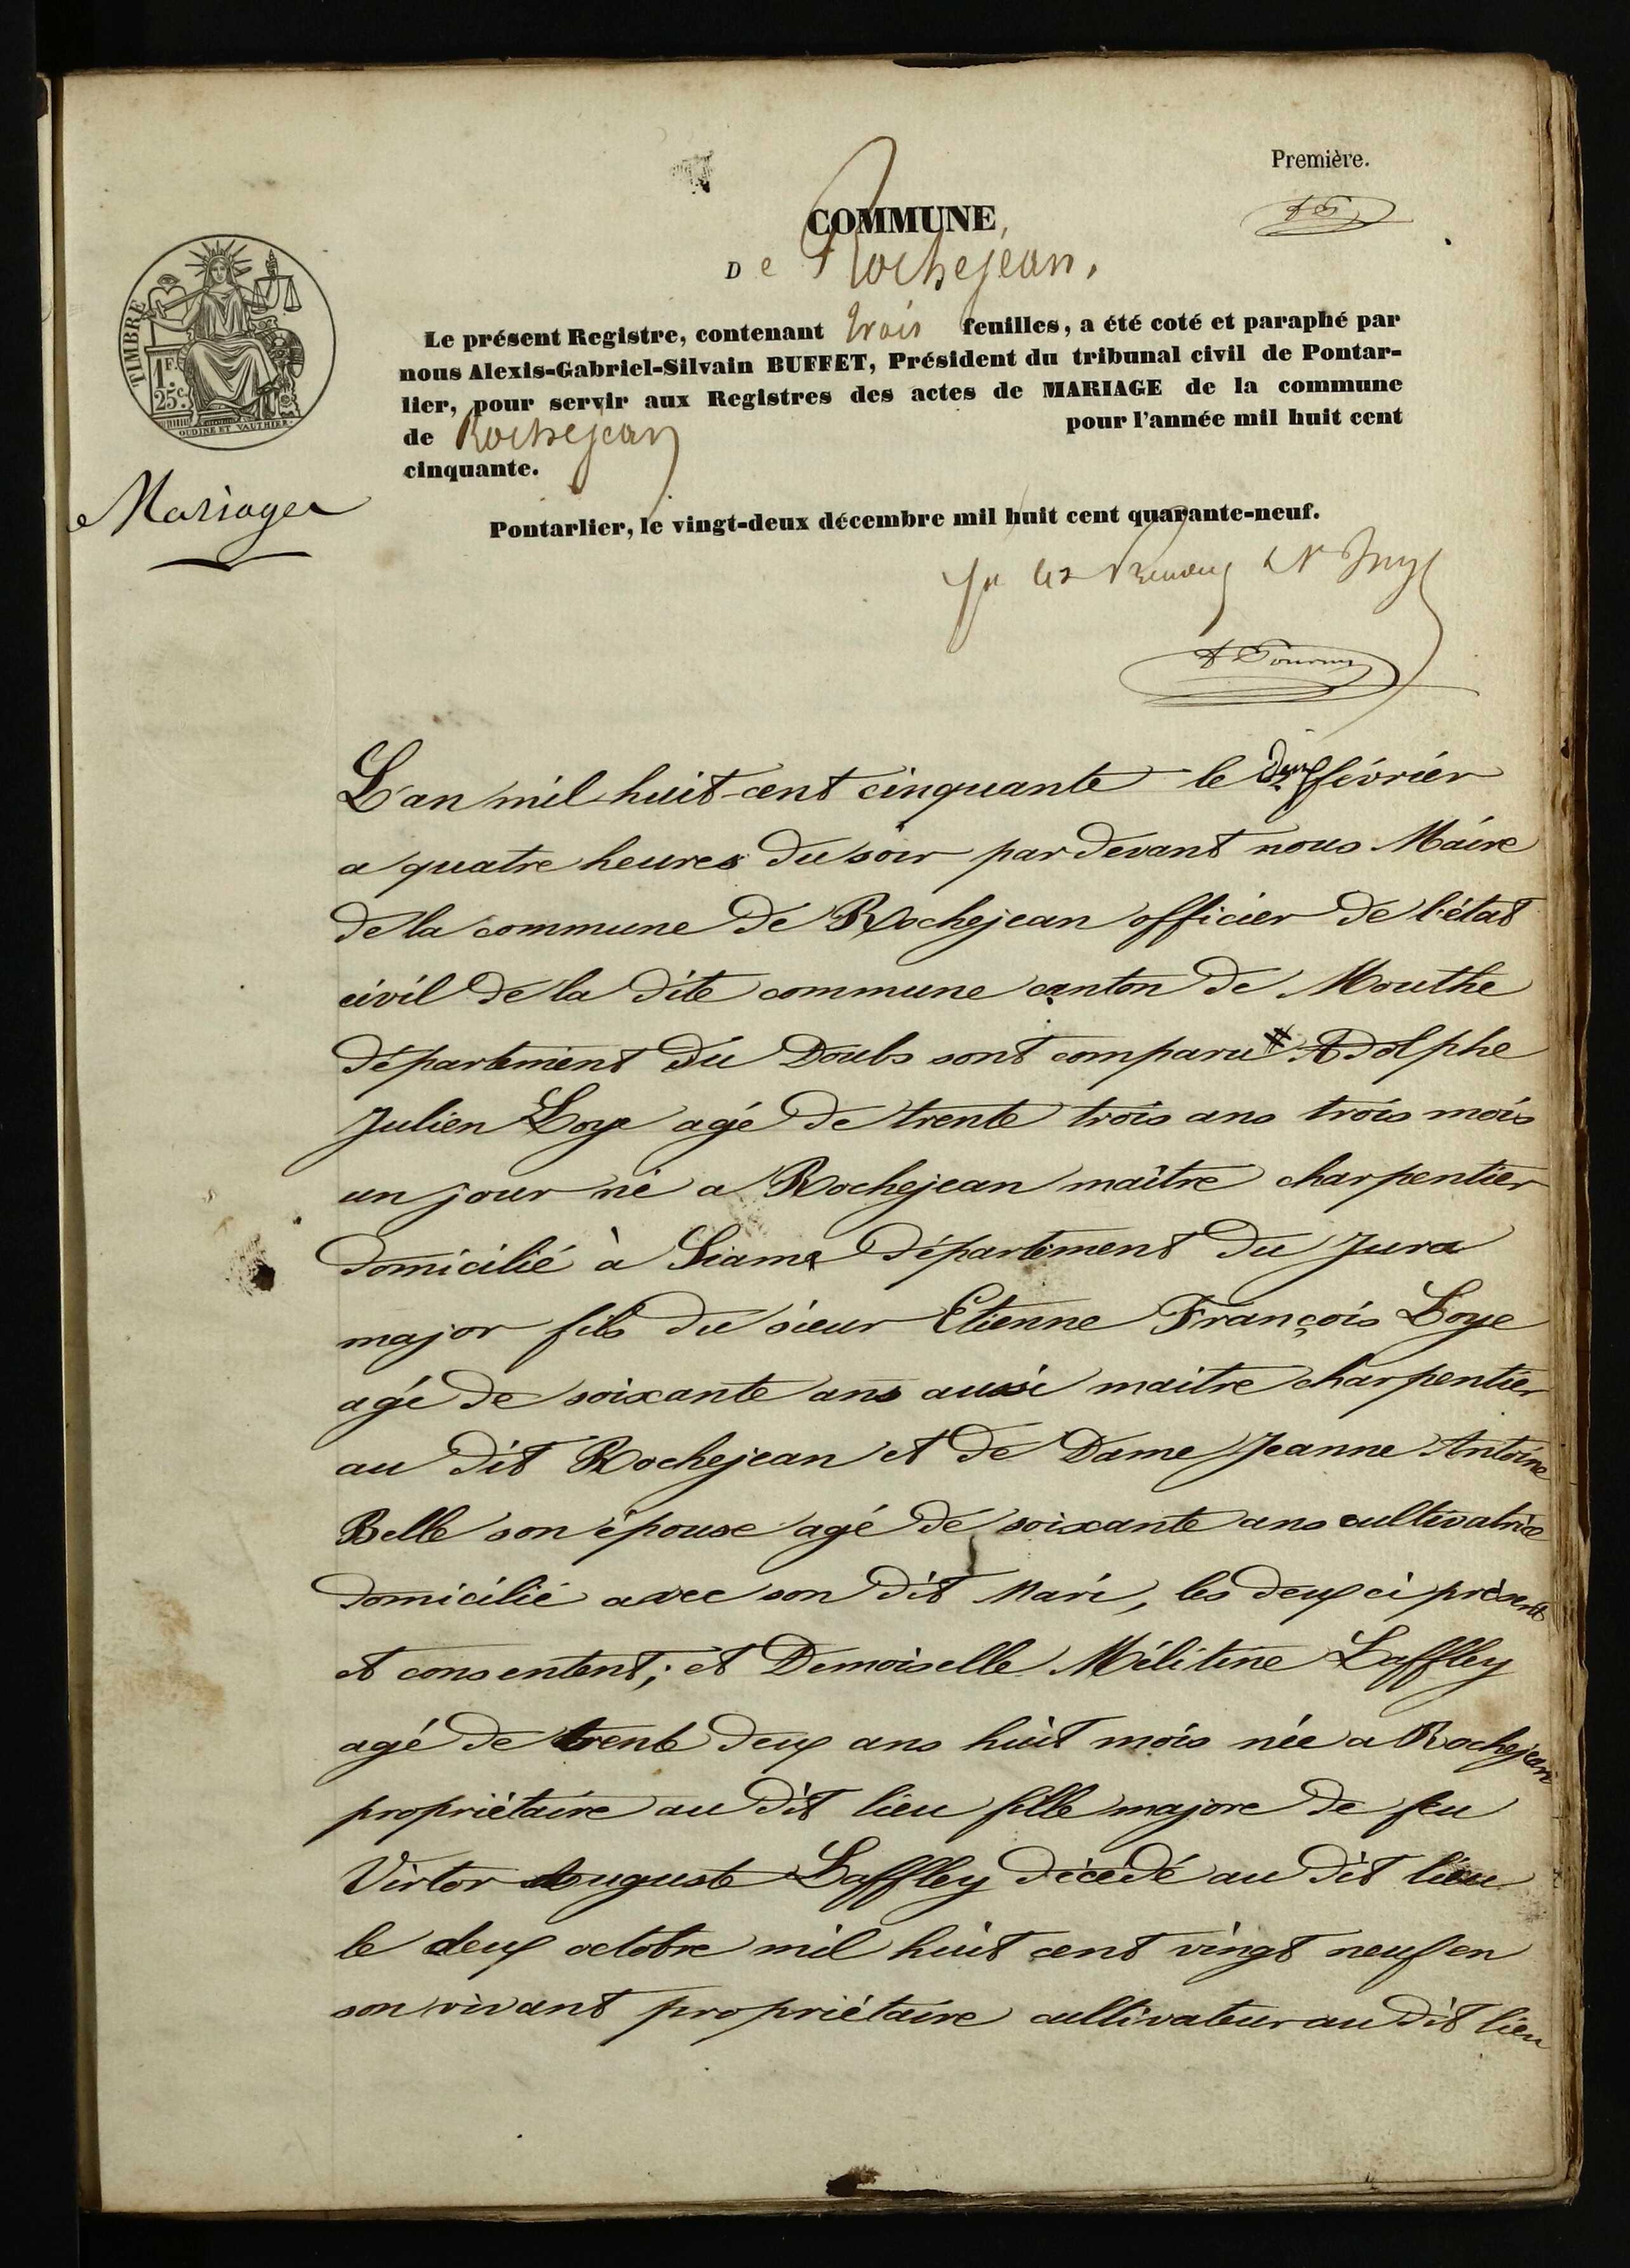 Première.
COMMUNE
De Rochejean,
TIMBRE
1 F.
25 c.
OUDINE ET VAUTHIER
Le présent Registre, contenant trois feuilles, a été coté et paraphé par
nous Alexis-Gabriel-Silvain BUFFET, Président du tribunal civil de Pontar-
lier, pour servir aux Registres des actes de MARIAGE de la commune
de Rochejean pour l'année mil huit cent
cinquante.
Mariages
Pontarlier, le vingt-deux décembre mil huit cent quarante-neuf.
L'an mil huit cent cinquante le deux février
a quatre heures du soir par devant nous Maire
de la commune de Rochejean officier de l'état
civil de la dite commune canton de Mouthe
département du Doubs sont comparu # Adolphe
Julien Loye agé de trente trois ans trois mois
un jour né a Rochejean maître charpentier
domicilié à Siam département du Jura
major fils du sieur Etienne François Loye
agé de soixante ans aussi maitre charpentier
au dit Rochejean et de Dame Jeanne Antoine
Belle son épouse agé de soixante ans cultivatrice
domicilié avec son dit Mari, les deux ci présent
et consentent; et Demoiselle Mélitine Laffley
agé de trente deux ans huit mois née a Rochejean
propriétaire au dit lieu fille majore de feu
Victor Auguste Laffley décedé au dit lieu
le deux octobre mil huit cent vingt neuf en
son vivant propriétaire cultivateur au dit lieu